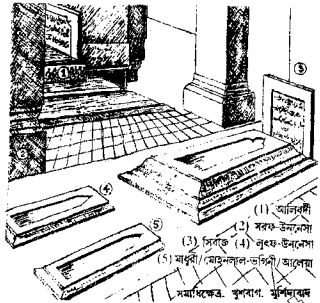 ①
②
③
④
⑤
(1) আলিবর্দী
(2) সরফ-উননেসা
(3) সিরাজ (4) লুৎফ-উননেসা
(5) মাধুরী/মোহনলাল-ভগিনী/আলেয়া
সমাধিক্ষেত্র. খুশবাগ. মুর্শিদাবাদ